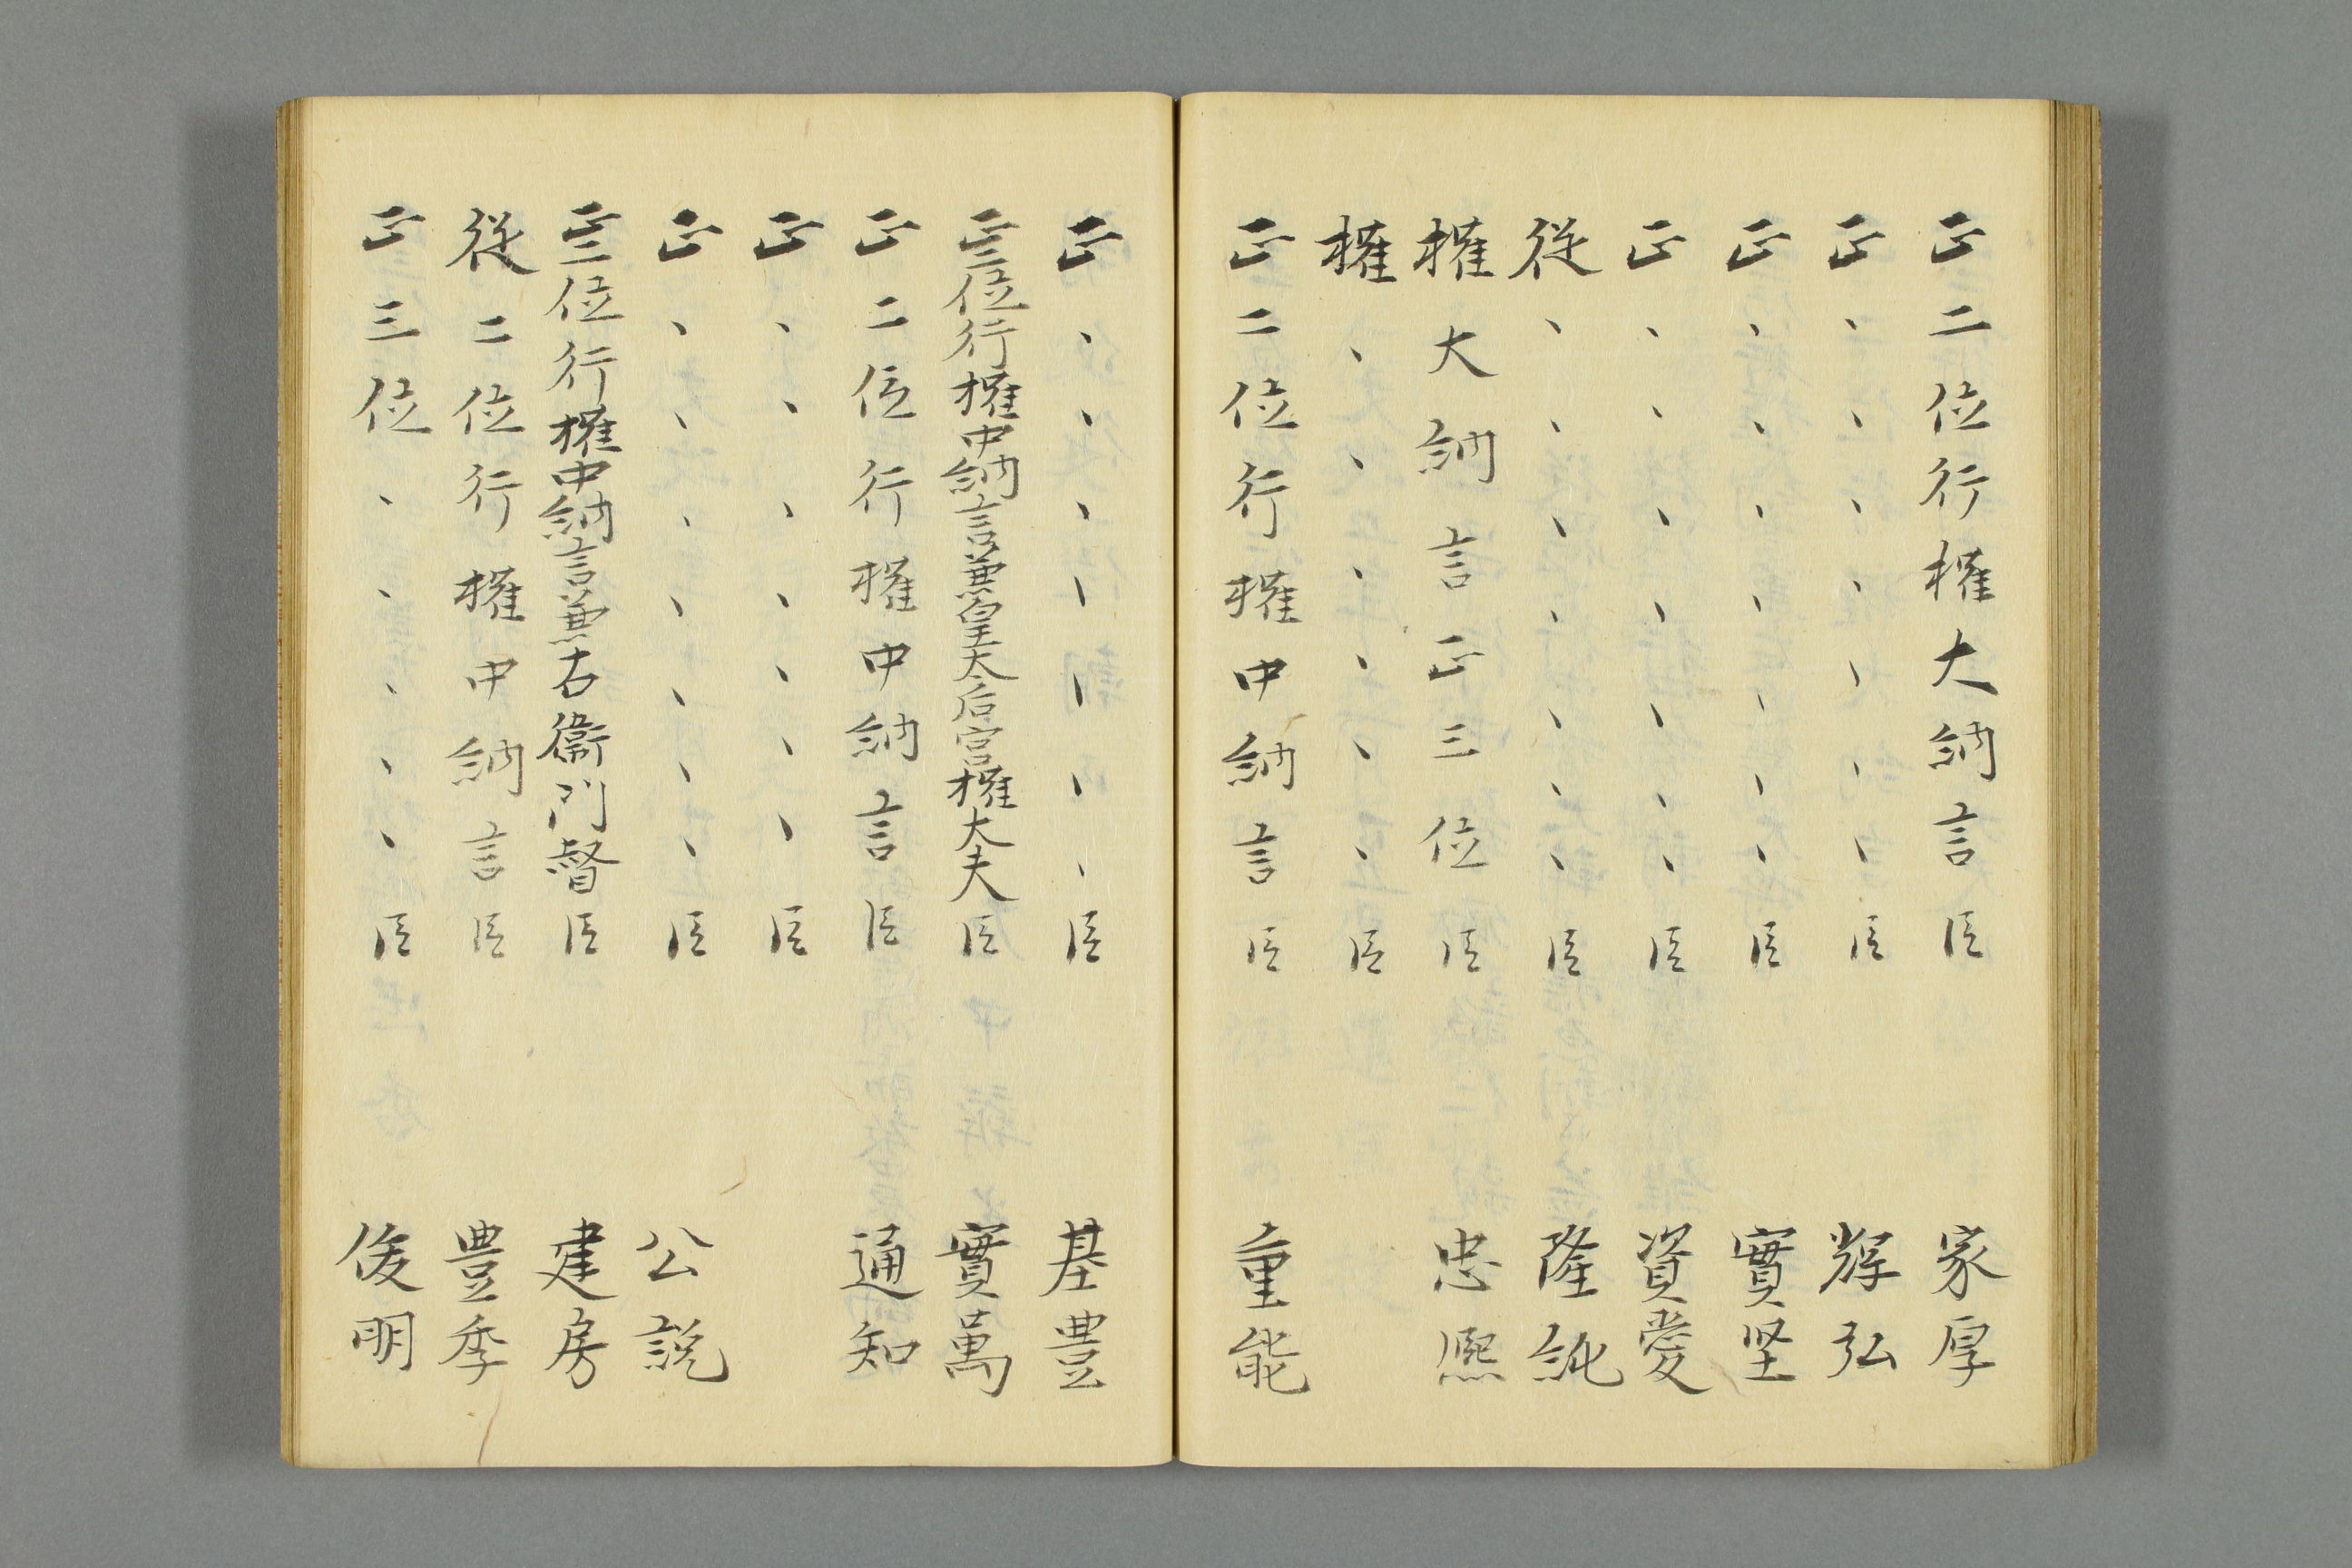 正二位行權大納言臣 家厚
正、、、、、、、臣 輝弘
正、、、、、、、臣 實堅
正、、、、、、、臣 資愛
従、、、、、、、臣 隆純
權大納言正三位臣 忠熈
權、、、、、、臣
正二位行權中納言臣 重能
正、、、、、、、臣 基豊
正二位行權中納言兼皇太后宮權大夫臣 實萬
正二位行權中納言臣 通知
正、、、、、、、臣
正、、、、、、、臣 公説
正二位行權中納言兼右衛門督臣 建房
従二位行權中納言臣 豊季
正三位、、、、、臣 俊明